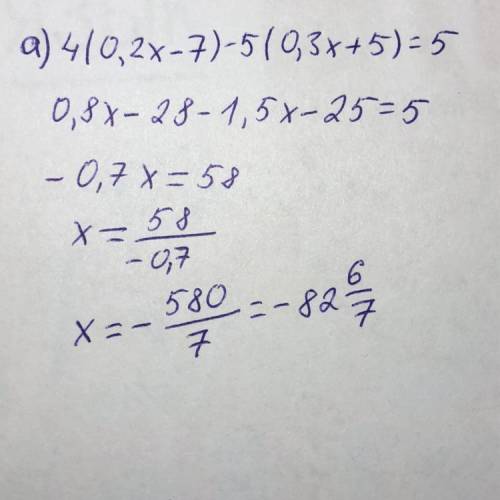 а) 4(0,2x-7)-5(0,3x+5)=5
0,8x-28-1,5x-25=5
-0,7x=58
x=58/-0,7
x=-580/7=-82 6/7